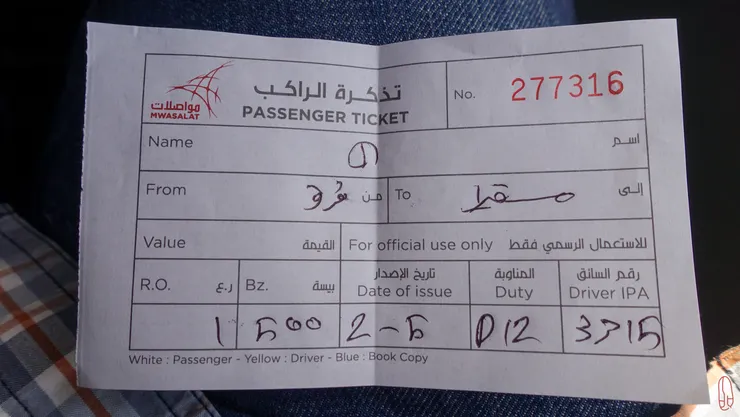 مواصلات
MWASALAT
تذكرة الراكب
PASSENGER TICKET
No. 277316
Name اسم
From من To إلى
Value القيمة For official use only للاستعمال الرسمي فقط
R.O. ر.ع. Bz. بيسة تاريخ الإصدار Date of issue المناوبة Duty رقم السائق Driver IPA
1 500 2-5 D12 3715
White : Passenger - Yellow : Driver - Blue : Book Copy